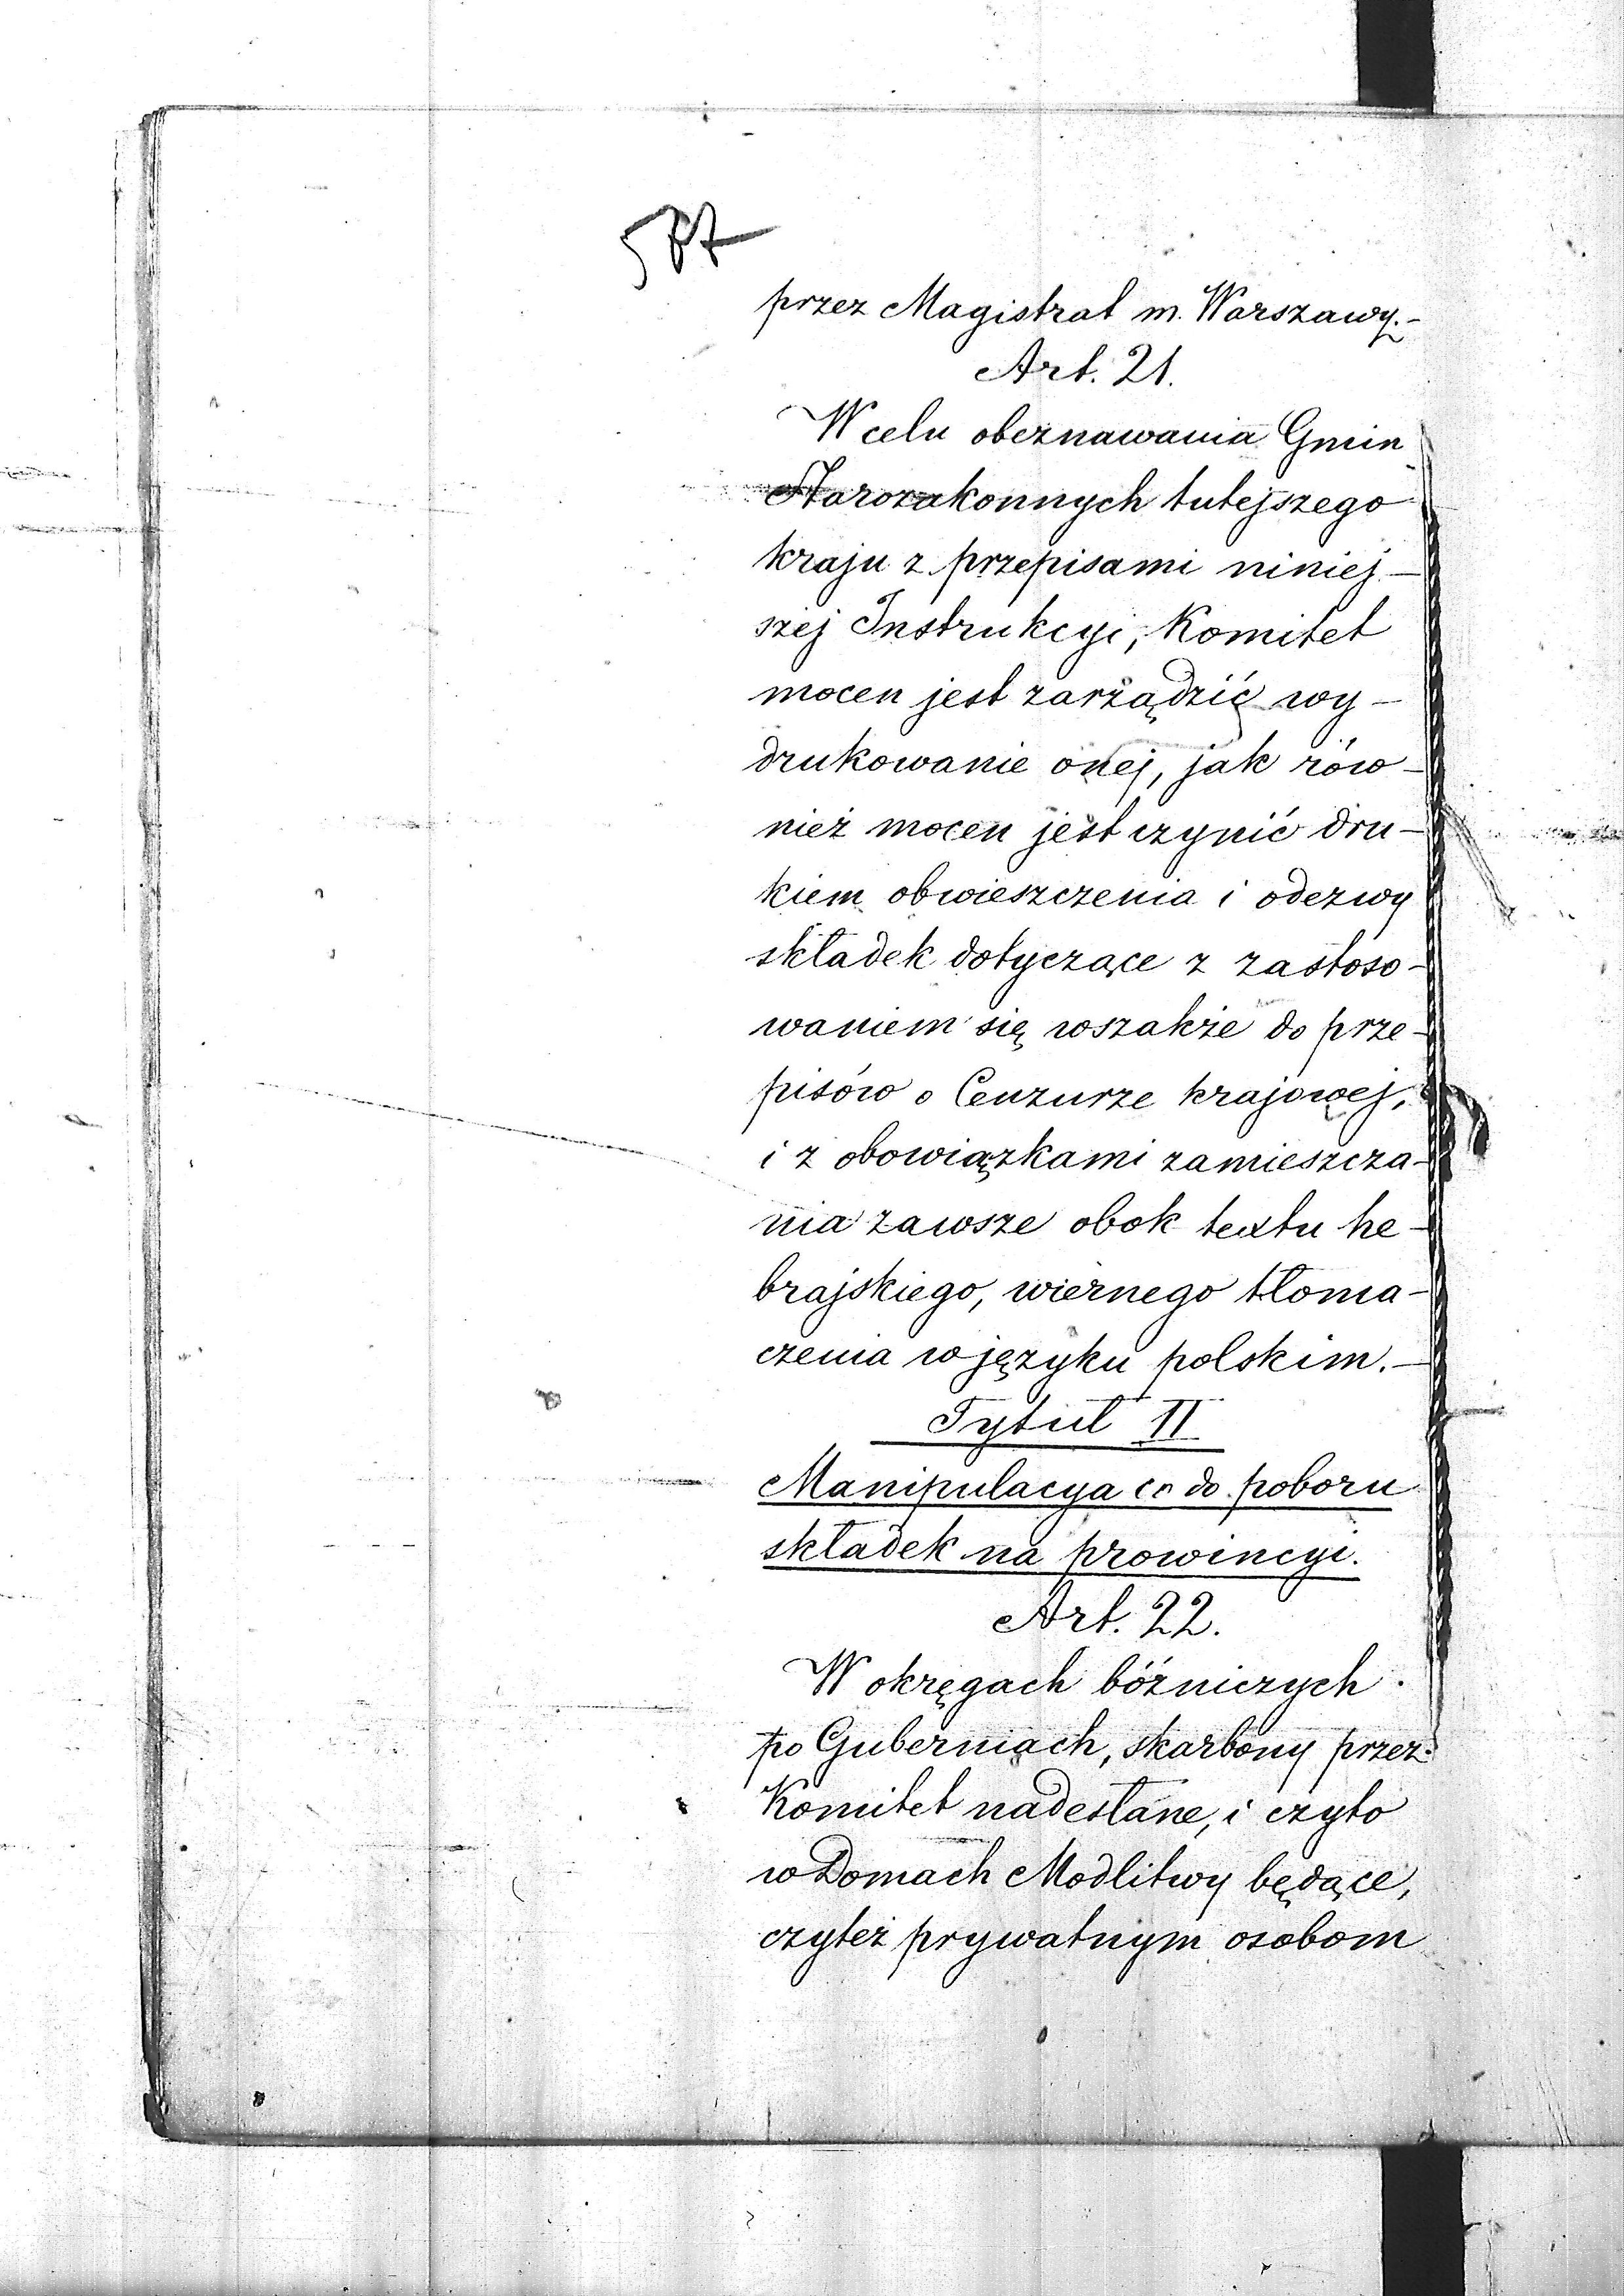 przez Magistrat m. Warszawy.-
Art. 21.
W celu obeznawania Gmin
Starozakonnych tutejszego
kraju z przepisami niniej-
szej Instrukcyi, Komitet
mocen jest zarządzić wy-
drukowanie onej, jak rów-
nież mocen jest czynić dru-
kiem obwieszczenia i odezwy
składek dotyczące z zastoso-
waniem się wszakże do prze-
pisów o Cenzurze krajowej,
i z obowiązkami zamieszcza-
nia zawsze obok textu he-
brajskiego, wiernego tłoma-
czenia w języku polskim.-
Tytuł II
Manipulacya co do poboru
składek na prowincyi.
Art. 22.
W okręgach bóźniczych
po Guberniach, skarbony przez
Komitet nadesłane, i czyto
w Domach Modlitwy będące,
czyteż prywatnym osobom